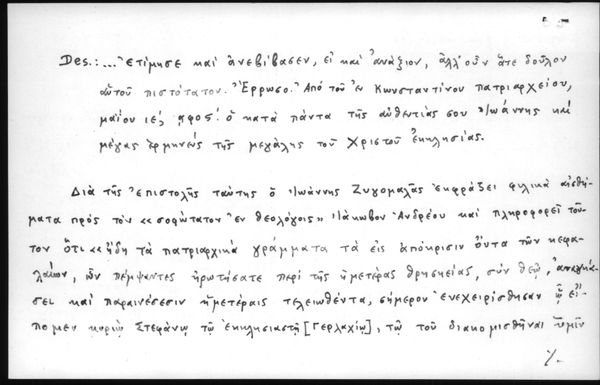 Des.: ... ἐτίμησε καὶ ἀνεβίβασεν, εἰ καὶ ἀνάξιον, ἀλλ' οὖν ἅτε δοῦλον
αὐτοῦ πιστότατον. Ἔρρωσο. Ἀπὸ τοῦ ἐν Κωνσταντίνου πατριαρχείου,
μαΐου ιε', ͵αφοε'. ὁ κατὰ πάντα τῆς αὐθεντίας σου Ἰωάννης καὶ
μέγας ἑρμηνεὺς τῆς μεγάλης τοῦ Χριστοῦ ἐκκλησίας.
Διὰ τῆς ἐπιστολῆς ταύτης ὁ Ἰωάννης Ζυγομαλᾶς ἐκφράζει φιλικὰ αἰσθή-
ματα πρὸς τὸν «σοφώτατον ἐν θεολόγοις» Ἰάκωβον Ἀνδρέου καὶ πληροφορεῖ τοῦ-
τον ὅτι «ἤδη τὰ πατριαρχικὰ γράμματα τὰ εἰς ἀπόκρισιν ὄντα τῶν κεφα-
λαίων, ὧν πέμψαντες ἠρωτήσατε περὶ τῆς ἡμετέρας θρησκείας, σὺν θεῷ,
σει καὶ παραινέσεσιν ἡμετέραις τελειωθέντα, σήμερον ἐνεχειρίσθησαν ᾧ εἴ-
πομεν κυρίῳ Στεφάνῳ τῷ ἐκκλησιαστῇ [Γερλαχίῳ], τῷ τοῦ διακομισθῆναι ὑμῖν
%.